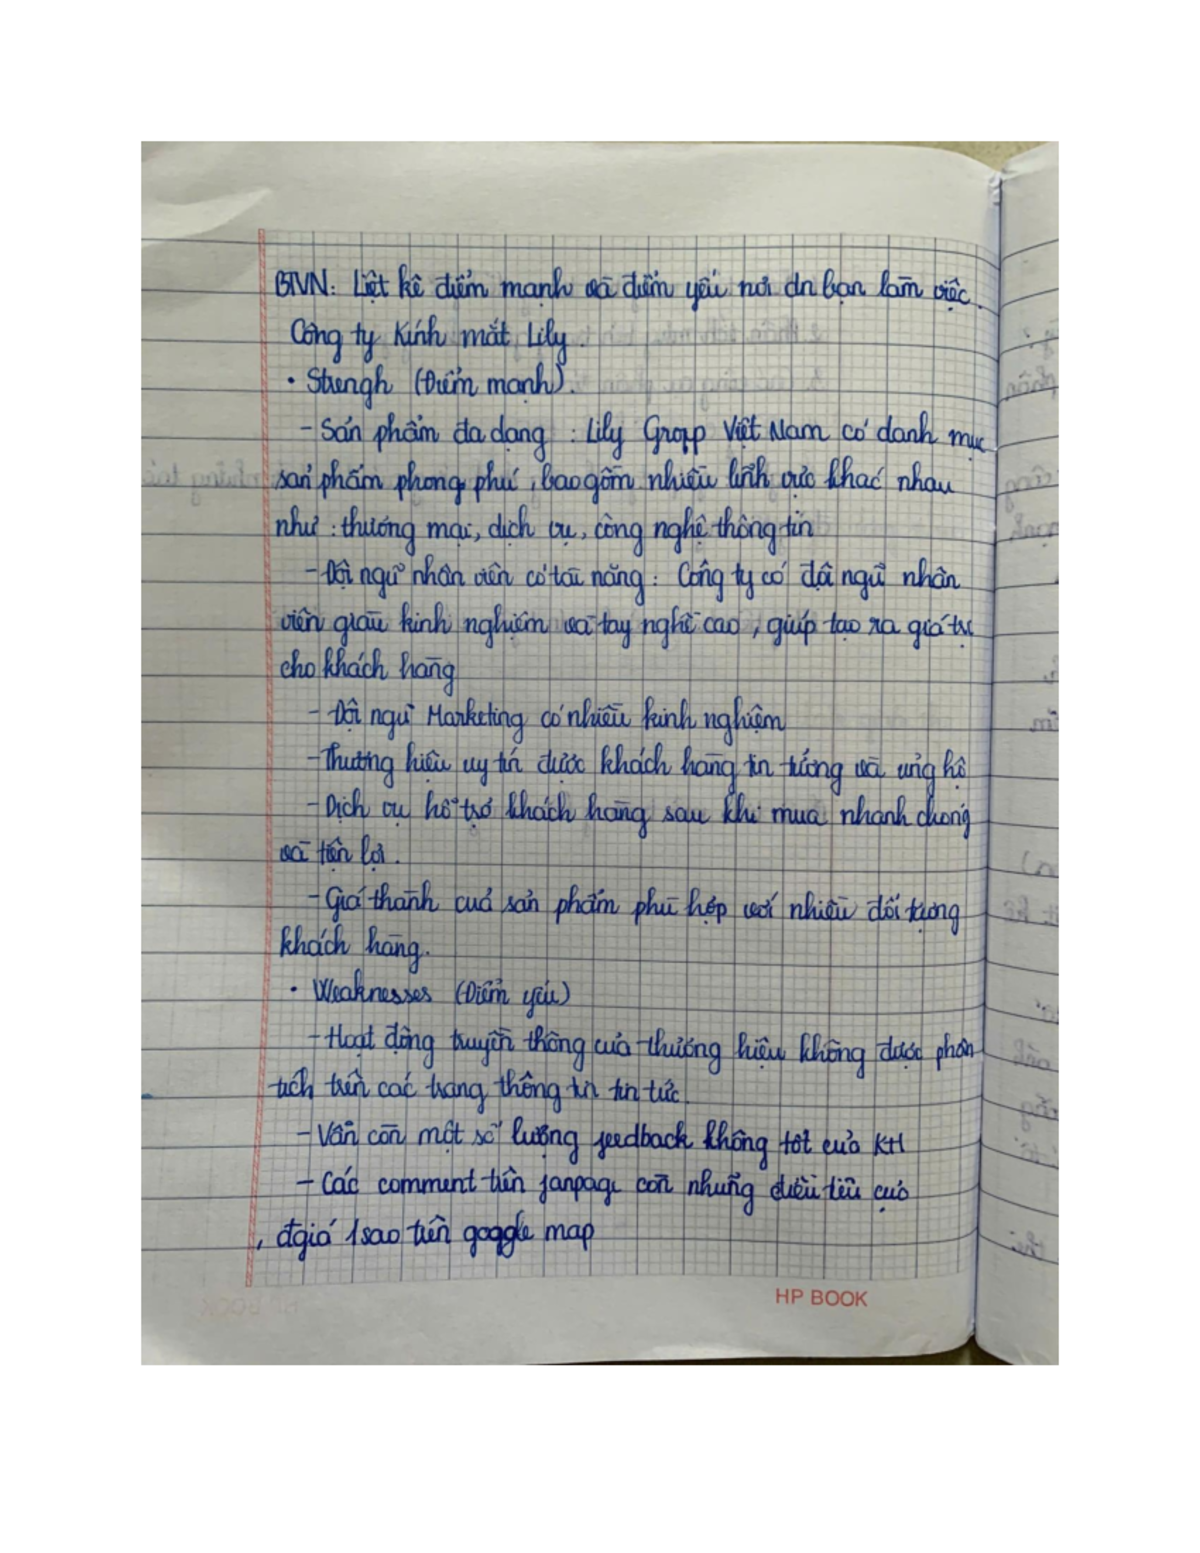 BTVN: Liệt kê điểm mạnh và điểm yếu nơi dn bạn làm việc.
Công ty Kính mắt Lily.
• Strengh (Điểm mạnh).
- Sản phẩm đa dạng : Lily Group Việt Nam có danh mục
sản phẩm phong phú, bao gồm nhiều lĩnh vực khác nhau
như : thương mại, dịch vụ, công nghệ thông tin
- Đội ngũ nhân viên có tài năng : Công ty có đội ngũ nhân
viên giàu kinh nghiệm và tay nghề cao, giúp tạo ra giá trị
cho khách hàng
- Đội ngũ Marketing có nhiều kinh nghiệm
- Thương hiệu uy tín được khách hàng tin tưởng và ủng hộ
- Dịch vụ hỗ trợ khách hàng sau khi mua nhanh chóng
và tiện lợi.
- Giá thành cuả sản phẩm phù hợp với nhiều đối tượng
khách hàng.
• Weaknesses (Điểm yếu)
- Hoạt động truyền thông của thương hiệu không được phân
tích trên các trang thông tin tin tức.
- Vẫn còn một số lượng feedback không tốt của KH
- Các comment trên fanpage còn những điều tiêu cực
, đgiá 1 sao trên goggle map
HP BOOK